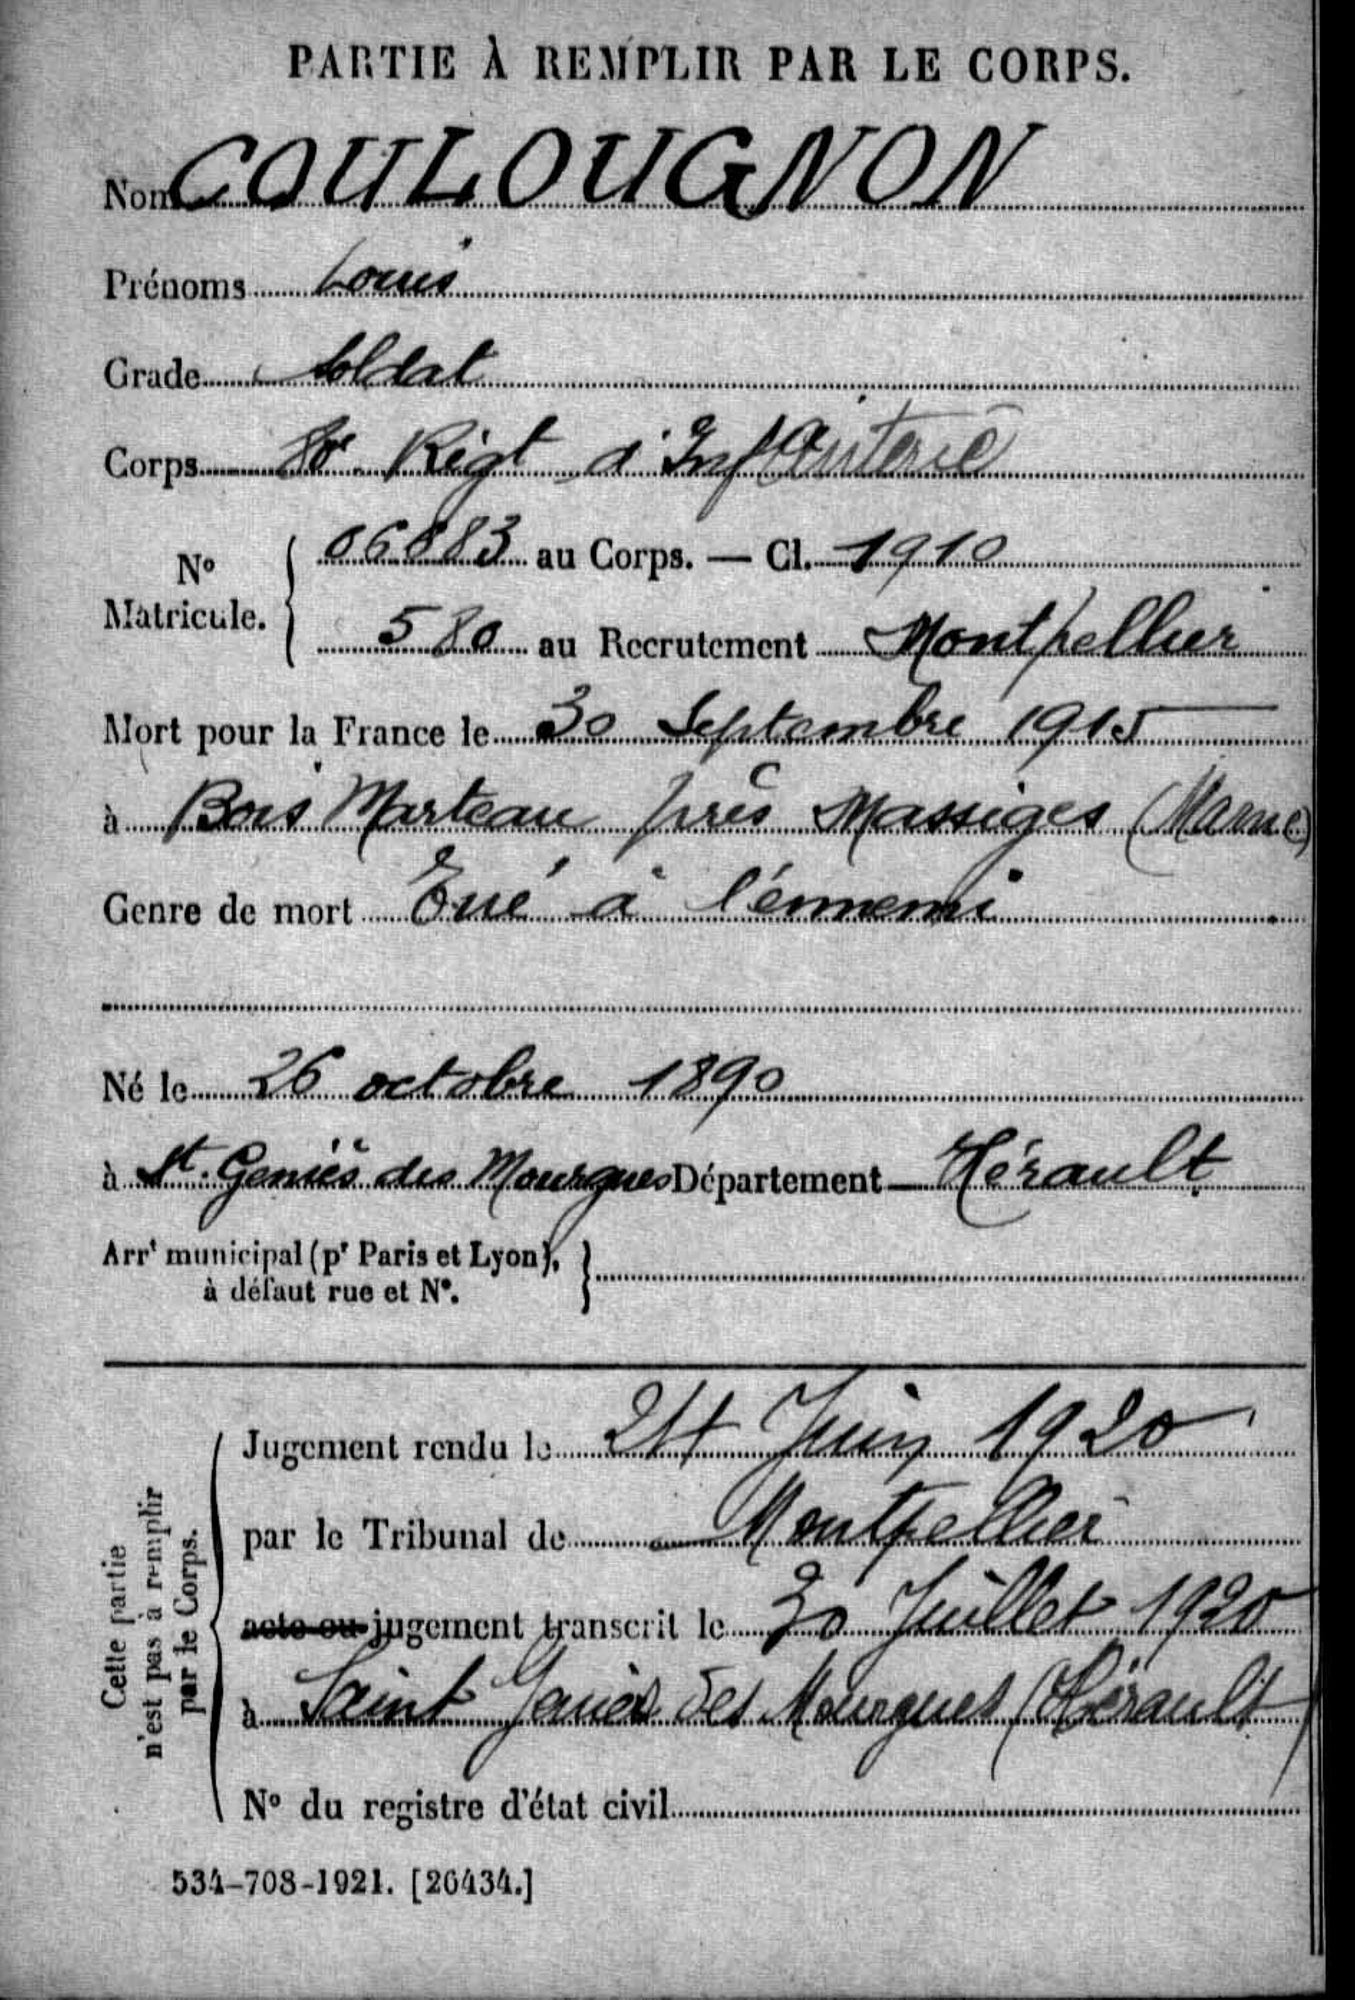 PARTIE À REMPLIR PAR LE CORPS.
Nom COULOUGNON
Prénoms Louis
Grade Soldat
Corps 8e Régt d'Infanterie
N° Matricule.
06883 au Corps. — Cl. 1910
580 au Recrutement Montpellier
Mort pour la France le 30 Septembre 1915
à Bois Marteau près Massiges (Marne)
Genre de mort Tué à l'énnemi
Né le 26 octobre 1890
à St. Geniès des Mourgues Département Hérault
Arrt municipal (pr Paris et Lyon), à défaut rue et N°.
Cette partie n'est pas à remplir par le Corps.
Jugement rendu le 24 Juin 1920
par le Tribunal de Montpellier
acte ou jugement transcrit le 30 Juillet 1920
à Saint Geniès des Mourgues (Hérault)
N° du registre d'état civil
534-708-1921. [26434.]